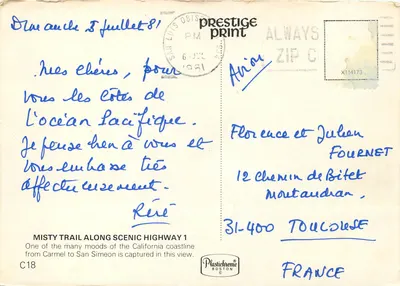 Dimanche 5 Juillet 81
PRESTIGE
PRINT
SAN LUIS OBISPO
PM
6 JUL
1981
ALWAYS
ZIP C
Avion
Mes chéries, pour
vous les côtes de
l'océan Pacifique.
Je pense bien à vous et
vous embrasse très
affectueusement.
Réré
Florence et Julien
FOURNET
12 Chemin de Bitet
Montaudran.
31-400 TOULOUSE
FRANCE
MISTY TRAIL ALONG SCENIC HIGHWAY 1
One of the many moods of the California coastline
from Carmel to San Simeon is captured in this view.
C18
Plastichrome
BOSTON